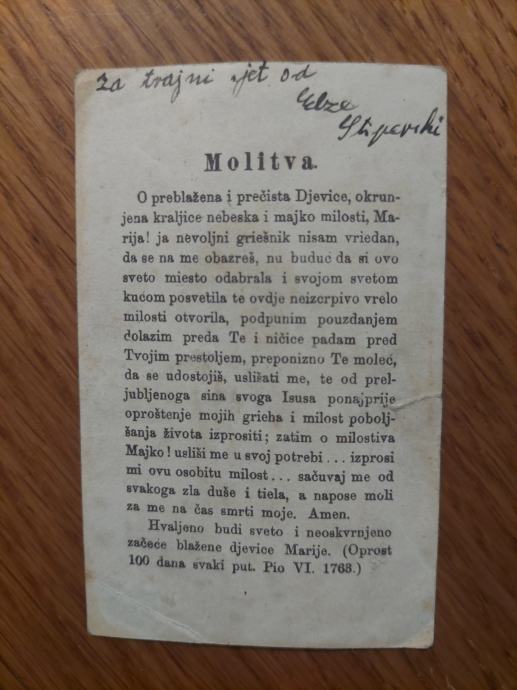 za trajni sjet od
Elze
Stiperski
Molitva.
O preblažena i prečista Djevice, okrun-
jena kraljice nebeska i majko milosti, Ma-
rija! ja nevoljni griešnik nisam vriedan,
da se na me obazreš, nu buduć da si ovo
sveto miesto odabrala i svojom svetom
kućom posvetila te ovdje neizcrpivo vrelo
milosti otvorila, podpunim pouzdanjem
dolazim preda Te i ničice padam pred
Tvojim prestoljem, preponizno Te moleć,
da se udostojiš, uslišati me, te od prel-
jubljenoga sina svoga Isusa ponajprije
oproštenje mojih grieha i milost pobolj-
šanja života izprositi; zatim o milostiva
Majko! usliši me u svoj potrebi... izprosi
mi ovu osobitu milost... sačuvaj me od
svakoga zla duše i tiela, a napose moli
za me na čas smrti moje. Amen.
Hvaljeno budi sveto i neoskvrnjeno
začeće blažene djevice Marije. (Oprost
100 dana svaki put. Pio VI. 1763.)